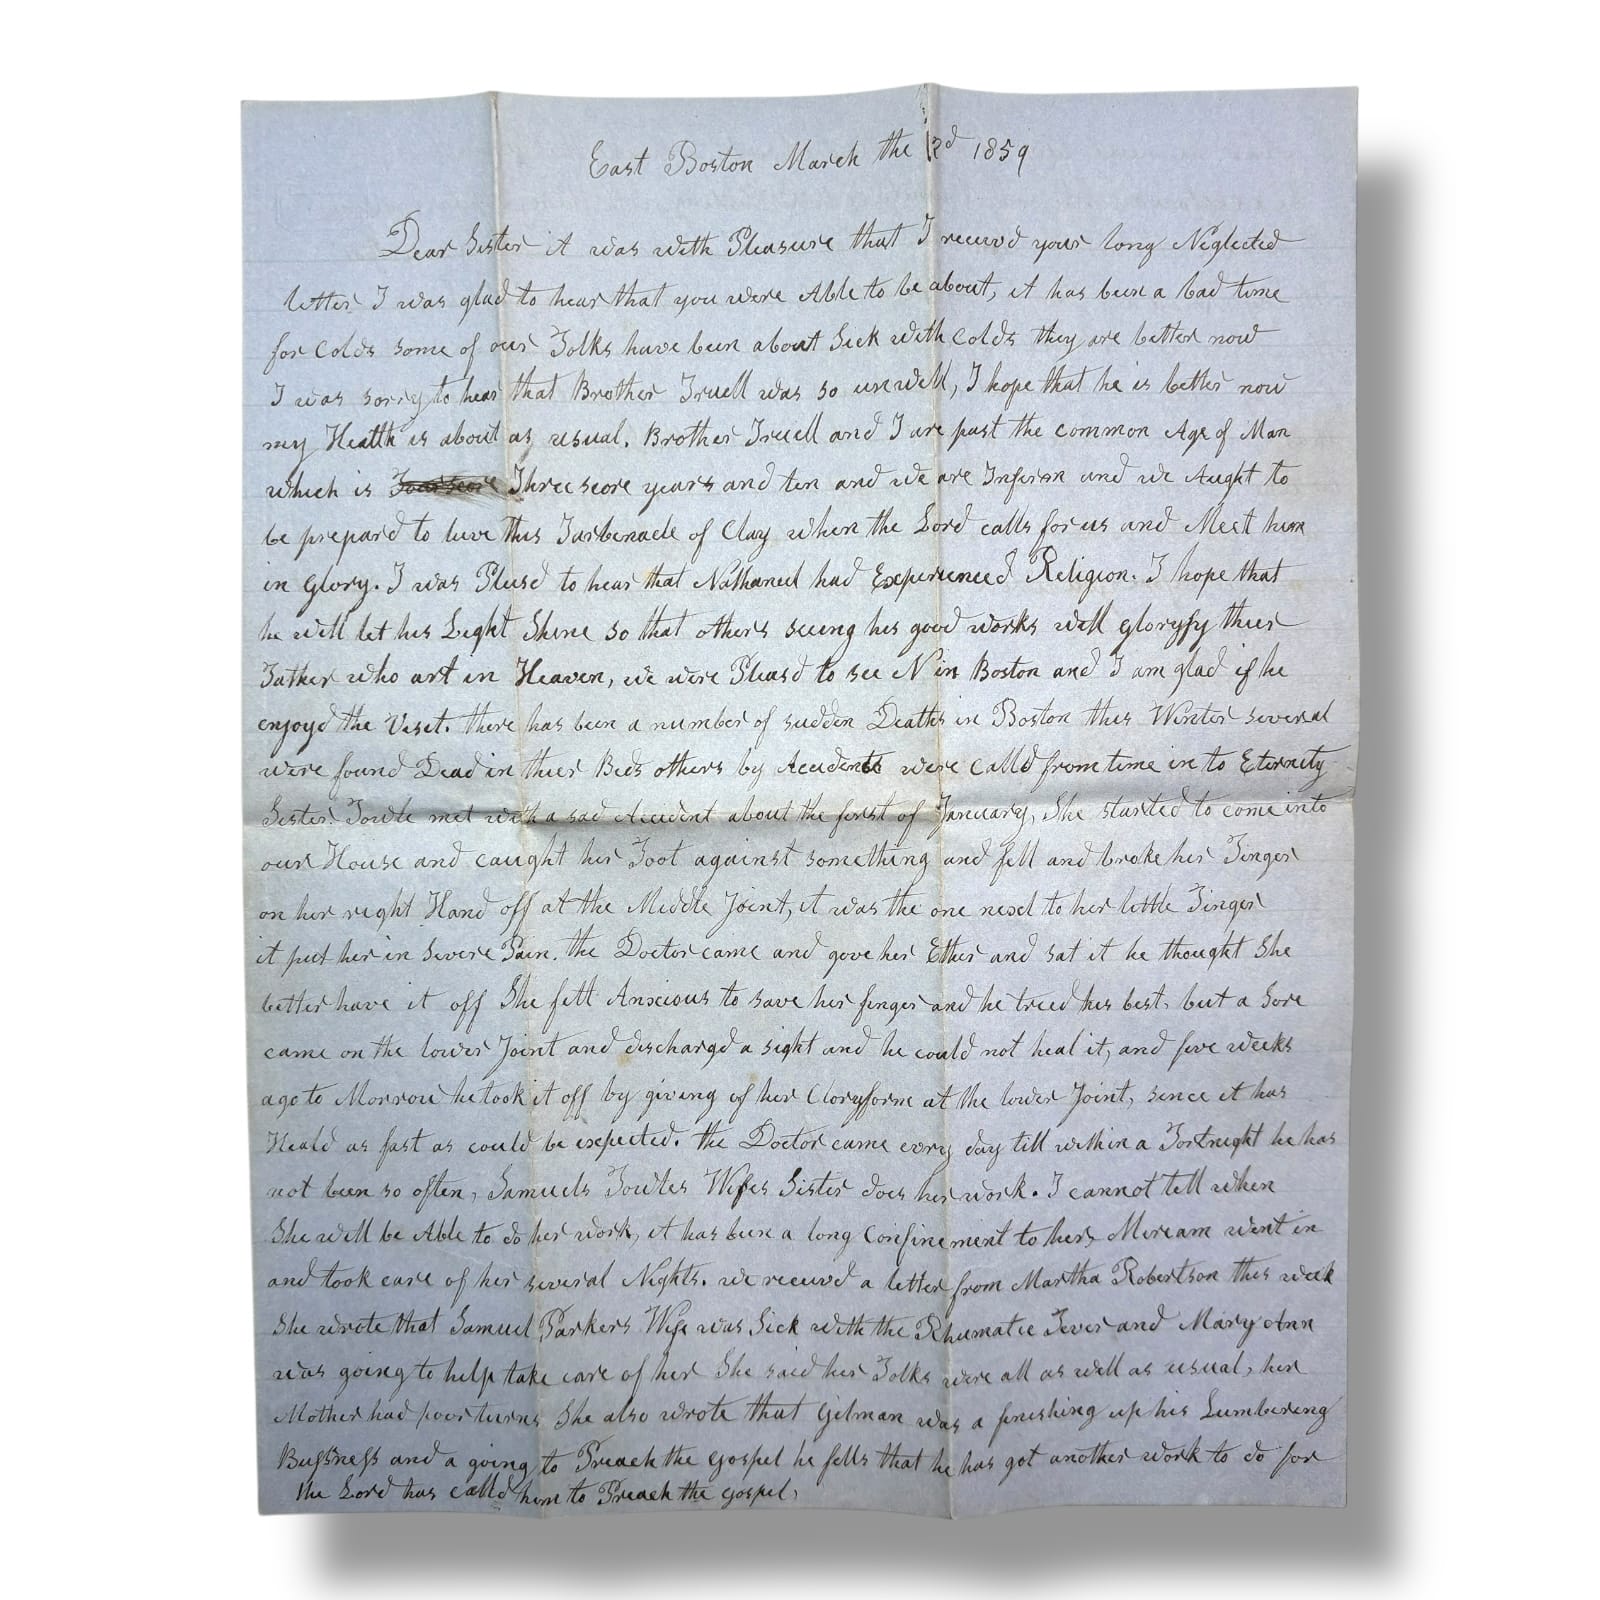 East Boston March the 12d 1859
Dear Sister it was with Pleasure that I receivd your long Neglected
letter I was glad to hear that you were Able to be about, it has been a bad time
for Colds some of our Folks have been about Sick with Colds they are better now
I was sorry to hear that Brother Truell was so unwell, I hope that he is better now
my Health is about as usual. Brother Truell and I are past the common Age of Man
which is Fourscore Threescore years and ten and we are Inferm and we Aught to
be prepard to leve this Tarbenacle of Clay when the Lord calls for us and Meet him
in Glory. I was Plesd to hear that Nathaneel had Experienced Religion. I hope that
he will let his Light Shine so that others seeing his good works will gloryfy thier
Father who art in Heaven, we were Pleasd to see N in Boston and I am glad if he
enjoyd the Visit. there has been a number of sudden Deaths in Boston this Winter several
were found Dead in thier Beds others by Accidents were calld from time in to Eternity
Sister Towle met with a sad Accident about the first of January, She started to come into
our House and caught her Foot against something and fell and broke her Finger
on her right Hand off at the Middle Joint, it was the one next to her little Finger
it put her in Severe Pain. the Doctor came and gove her Ether and sat it he thought She
better have it off She felt Anxcious to save her finger and he tried his best, but a Sore
came on the lower Joint and dischargd a sight and he could not heal it, and five weeks
ago to Morrow he took it off by giving of her Cloryforme at the lower Joint, since it has
Heald as fast as could be expected. the Doctor came evry day till within a Fortneght he has
not been so often, Samuels Towles Wifes Sister does her work. I cannot tell when
She will be Able to do her work, it has been a long Confinement to her, Miriam went in
and took care of her several Nights. we receivd a letter from Martha Robertson this week
She wrote that Samuel Parkers Wife was Sick with the Rhumatic Fever and Mary Ann
was going to help take care of her She said her Folks were all as well as usual, her
Mother had poor turns She also wrote that Gilman was a finishing up his Lumbering
Bussness and a going to Preach the gospel he fells that he has got another work to do for
the Lord has calld him to Preach the gospel,